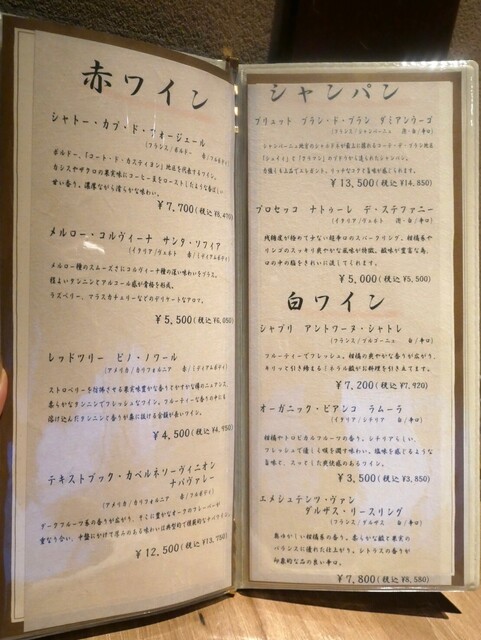 赤ワイン
シャトー・カプ・ド・フォージェール
(フランス/ボルドー 赤/フルボディ)
ボルドー、「コート・ド・カスティヨン」地区を代表するワイン。
カシスやザクロの果実味にコーヒー豆をローストしたような香ばしい
甘い香り。濃厚ながら滑らかな味わい。
¥7,700(税込 ¥8,470)
メルロー・コルヴィーナ サンタ・ソフィア
(イタリア/ヴェネト 赤/ミディアムボディ)
メルロー種のスムーズさにコルヴィーナ種の深い味わいをプラス。
程よいタンニンとアルコール感が骨格を形成。
ラズベリー、マラスカチェリーなどのデリケートなアロマ。
¥5,500(税込 ¥6,050)
レッドツリー ピノ・ノワール
(アメリカ/カリフォルニア 赤/ミディアムボディ)
ストロベリーを彷彿させる果実味豊かな香りとかすかな樽のニュアンス、
柔らかなタンニンでフレッシュなワイン。フルーティーな香りの中にも
溶け込んだタンニンと香りが鼻に抜ける余韻が長いワイン。
¥4,500(税込 ¥4,950)
テキストブック・カベルネソーヴィニオン
ナパヴァレー
(アメリカ/カリフォルニア 赤/フルボディ)
ダークフルーツ系の香りが広がり、すぐに豊かなオークのフレーバーが
重なり合い、中盤にかけて厚みのある味わいは典型的で模範的なナパワイン。
¥12,500(税込 ¥13,750)
シャンパン
ブリュット ブラン・ド・ブラン ダミアンウーゴ
(フランス/シャンパーニュ 泡・白/辛口)
シャンパーニュ地方のシャルドネが最上に採れるコート・デ・ブラン地区
¥13,500(税込 ¥14,850)
プロセッコ ナトゥーレ デ・ステファニー
(イタリア/ヴェネト 泡・白/辛口)
残糖度が極めて少ない超辛口のスパークリング。柑橘系や
リンゴのスッキリ爽やかな風味が特徴。酸味が豊富な為、
口の中の脂をきれいに流してくれます。
¥5,000(税込 ¥5,500)
白ワイン
シャブリ アントワーヌ・シャトレ
(フランス/ブルゴーニュ 白/辛口)
フルーティーでフレッシュ、柑橘の爽やかな香りが広がり、
キリッと引き締まるミネラル感がお料理を引き立てます。
¥7,200(税込 ¥7,920)
オーガニック・ビアンコ ラムーラ
(イタリア/シチリア 白/辛口)
柑橘やトロピカルフルーツの香り。シチリアらしい、
フレッシュで優しく喉を潤す味わい。塩味を感じるような
旨味で、スッとした爽快感のあるワイン。
¥3,500(税込 ¥3,850)
エメシュテンツ・ヴァン
ダルザス・リースリング
(フランス/アルザス 白/辛口)
奥ゆかしい柑橘系の香り。柔らかな酸と果実の
バランスに優れた仕上がり。シトラスの香りが
印象的な品の良い辛口。
¥7,800(税込 ¥8,580)